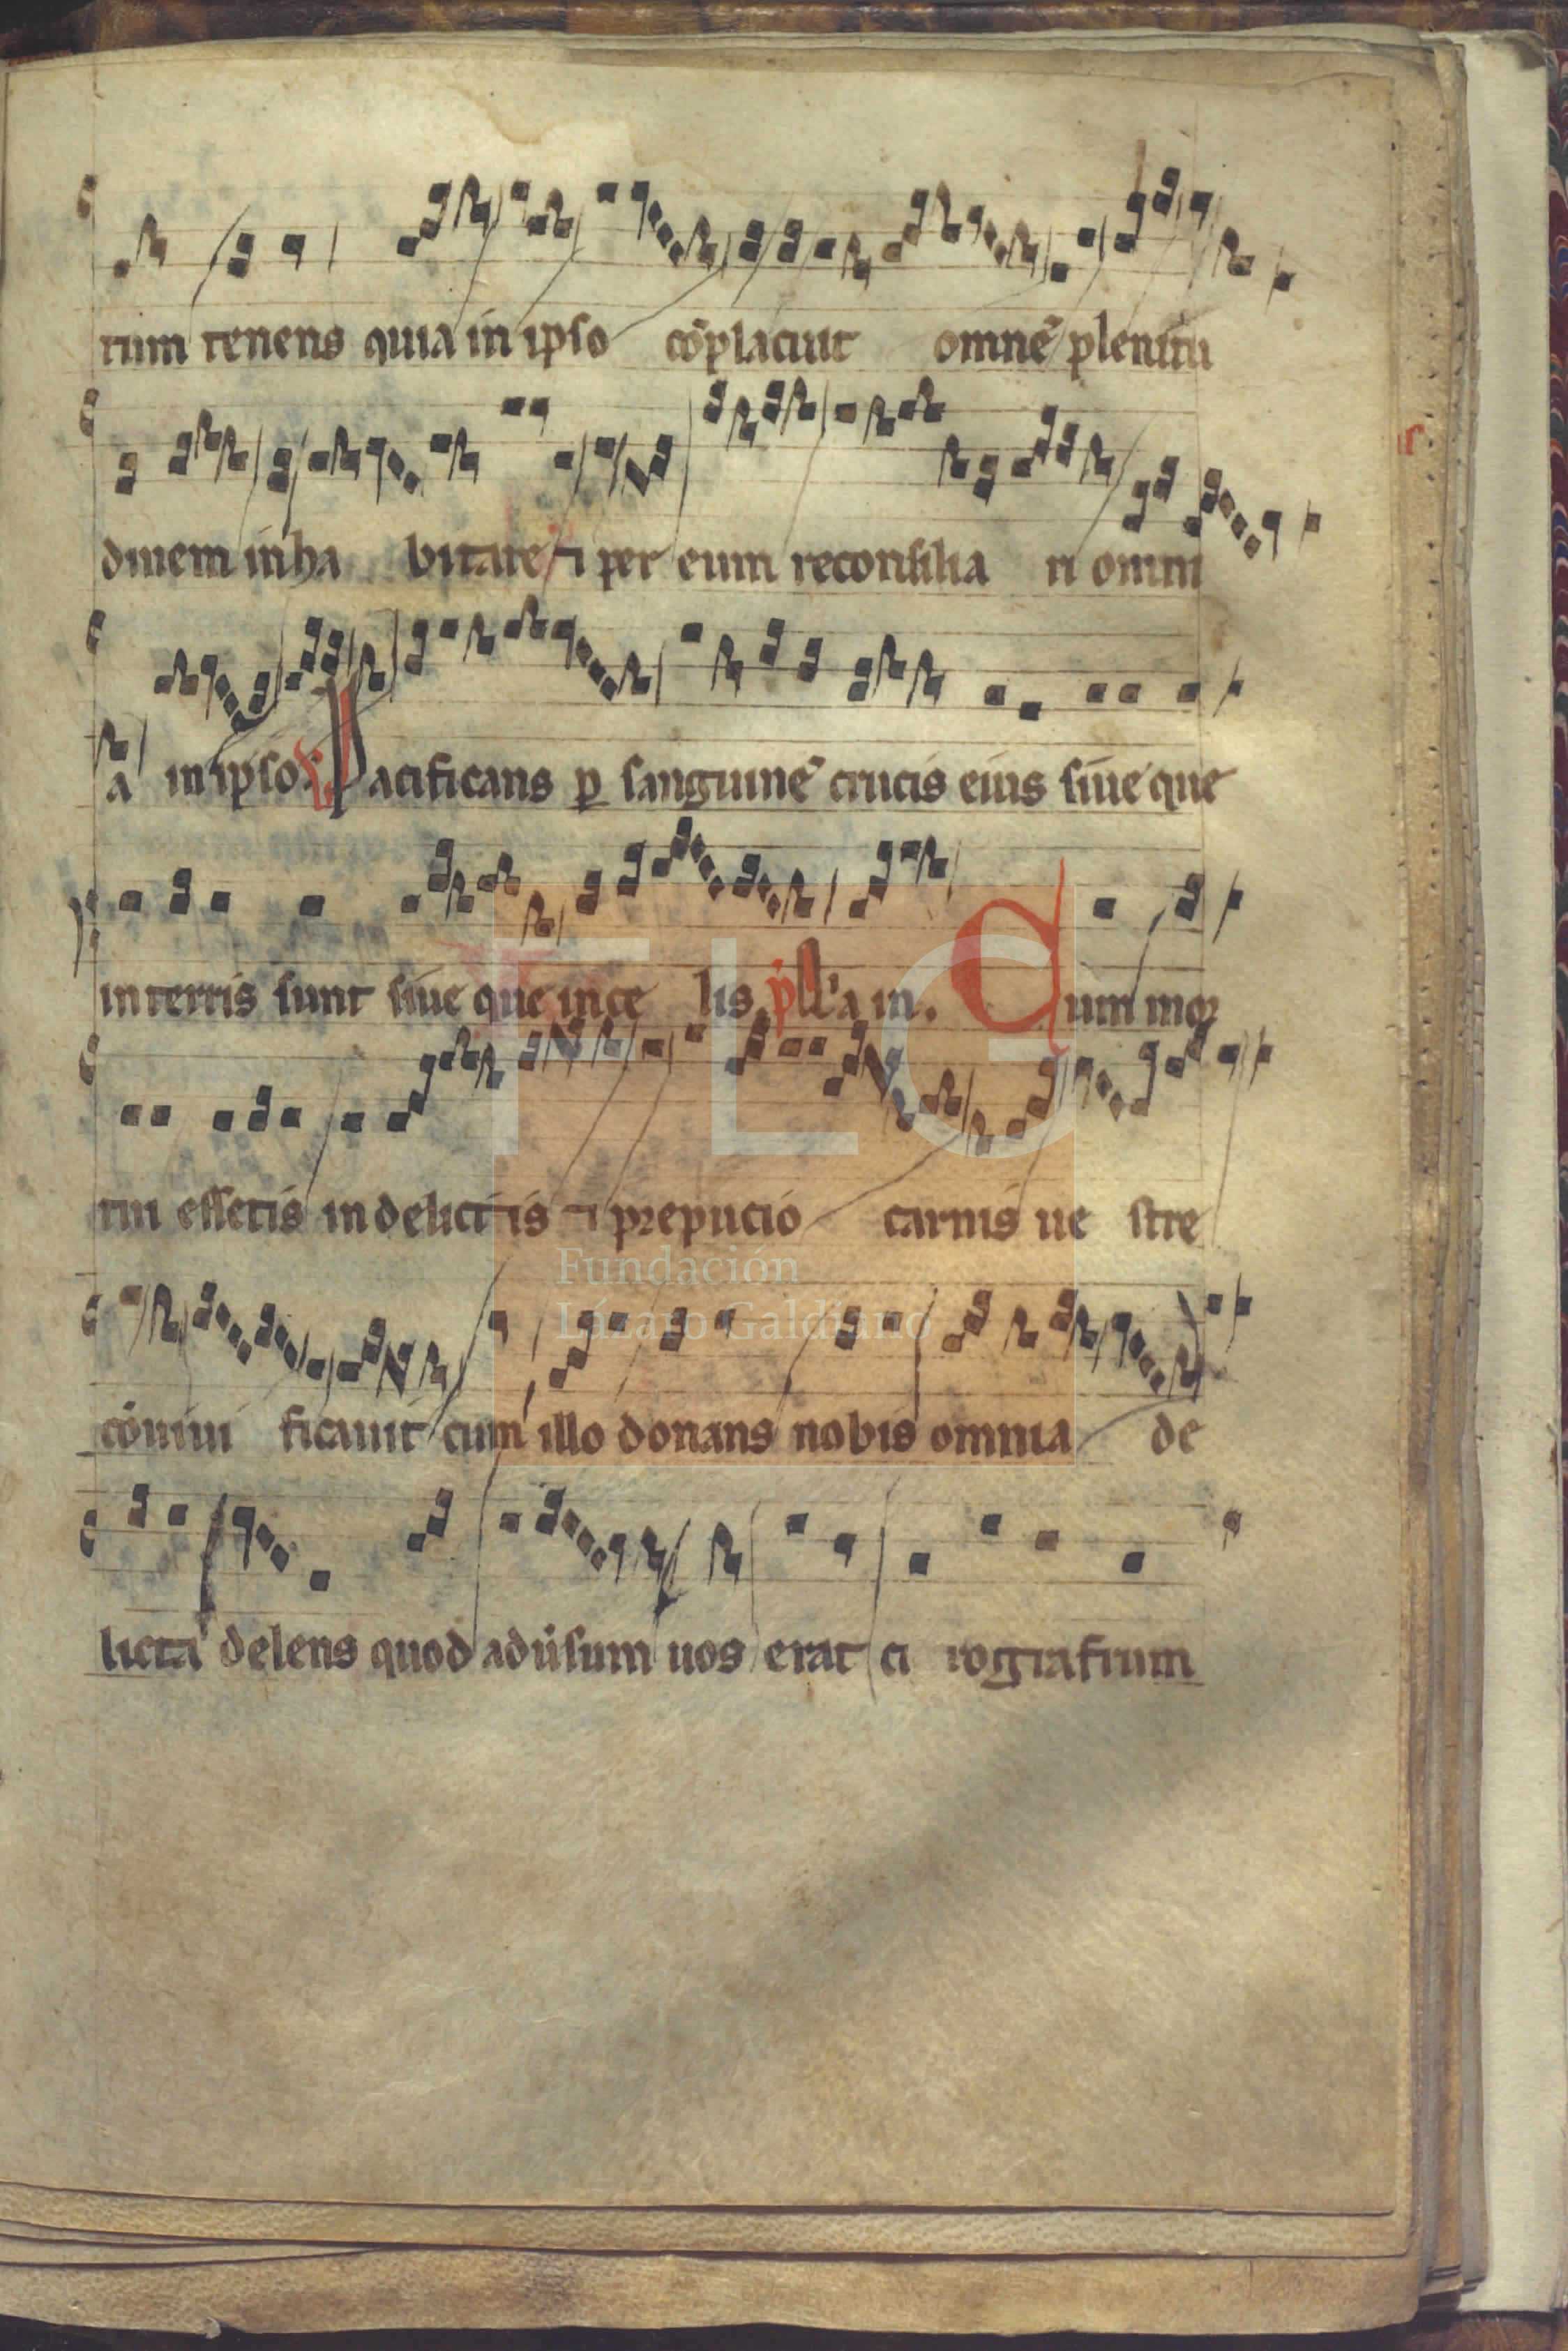 tum tenens quia in ipso cōplacuit omnē plenitu
dinem inha bitare ⁊ per eum reconsilia ri omni
a in ipso. V Pacificans ꝑ sanguinē crucis eius siue que
in terris sunt siue que in ce lis. p̄ ll'a in. Cum mor
tui essetis in delictis ⁊ prepucio carnis ue stre
cōuiui ficauit cum illo donans nobis omnia de
licta delens quod aduͥsum uos erat ci rografium
FLG
Fundación
Lázaro Galdiano